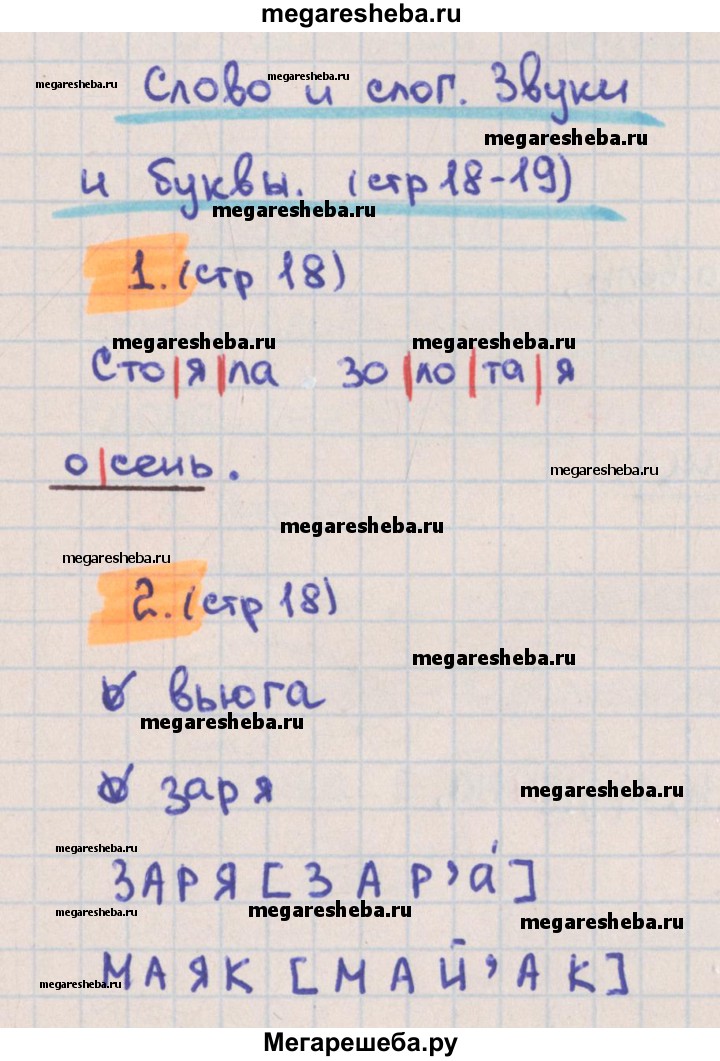 megaresheba.ru
megaresheba.ru
megaresheba.ru
Слово и слог. Звуки
megaresheba.ru
и буквы. (стр 18-19)
megaresheba.ru
1. (стр 18)
megaresheba.ru megaresheba.ru
Сто|я|ла зо|ло|та|я
о|сень.
megaresheba.ru
megaresheba.ru
megaresheba.ru
2. (стр 18)
megaresheba.ru
вьюга
megaresheba.ru
заря
megaresheba.ru
megaresheba.ru
ЗАРЯ [З А Р ’ а́]
megaresheba.ru megaresheba.ru
megaresheba.ru
МАЯК [М А Й ’ А К]
megaresheba.ru
Мегарешеба.ру